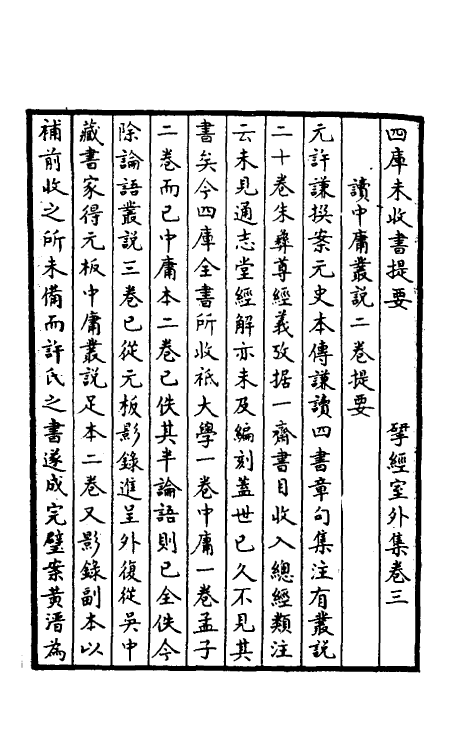 四庫未收書提要　　　揅經室外集卷三
讀中庸叢說二卷提要
元許謙撰案元史本傳謙讀四書章句集注有叢說
二十卷朱彝尊經義攷据一齋書目收入總經類注
云未見通志堂經解亦未及編刻蓋世已久不見其
書矣今四庫全書所收祇大學一卷中庸一卷孟子
二卷而已中庸本二卷已佚其半論語則已全佚今
除論語叢說三卷已從元板影錄進呈外復從吳中
藏書家得元板中庸叢說足本二卷又影錄副本以
補前收之所未備而許氏之書遂成完璧案黃溍為